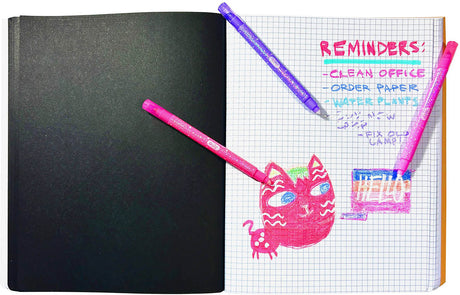 REMINDERS:
-CLEAN OFFICE
-ORDER PAPER
-WATER PLANTS
-FIX OLD
LAMP!
HELLO